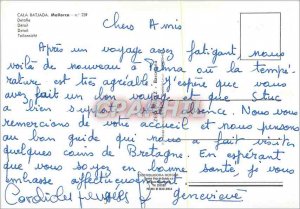 CALA RATJADA Mallorca - n.° 759
Detalle
Détail
Detail
Teilansicht
Chers Amis
Après un voyage assez fatigant, nous
voilà de nouveau à Palma où la tempé-
rature est très agréable. J'espère que vous
avez fait un bon voyage et que
a bien supporté absence. Nous vous
remercions de votre accueil et nous pensons
au bon guide qui nous a fait visiter
quelques coins de Bretagne. En espérant
que vous soyez en bonne santé je vous
embrasse affectueusement
Cordiales
Geneviève